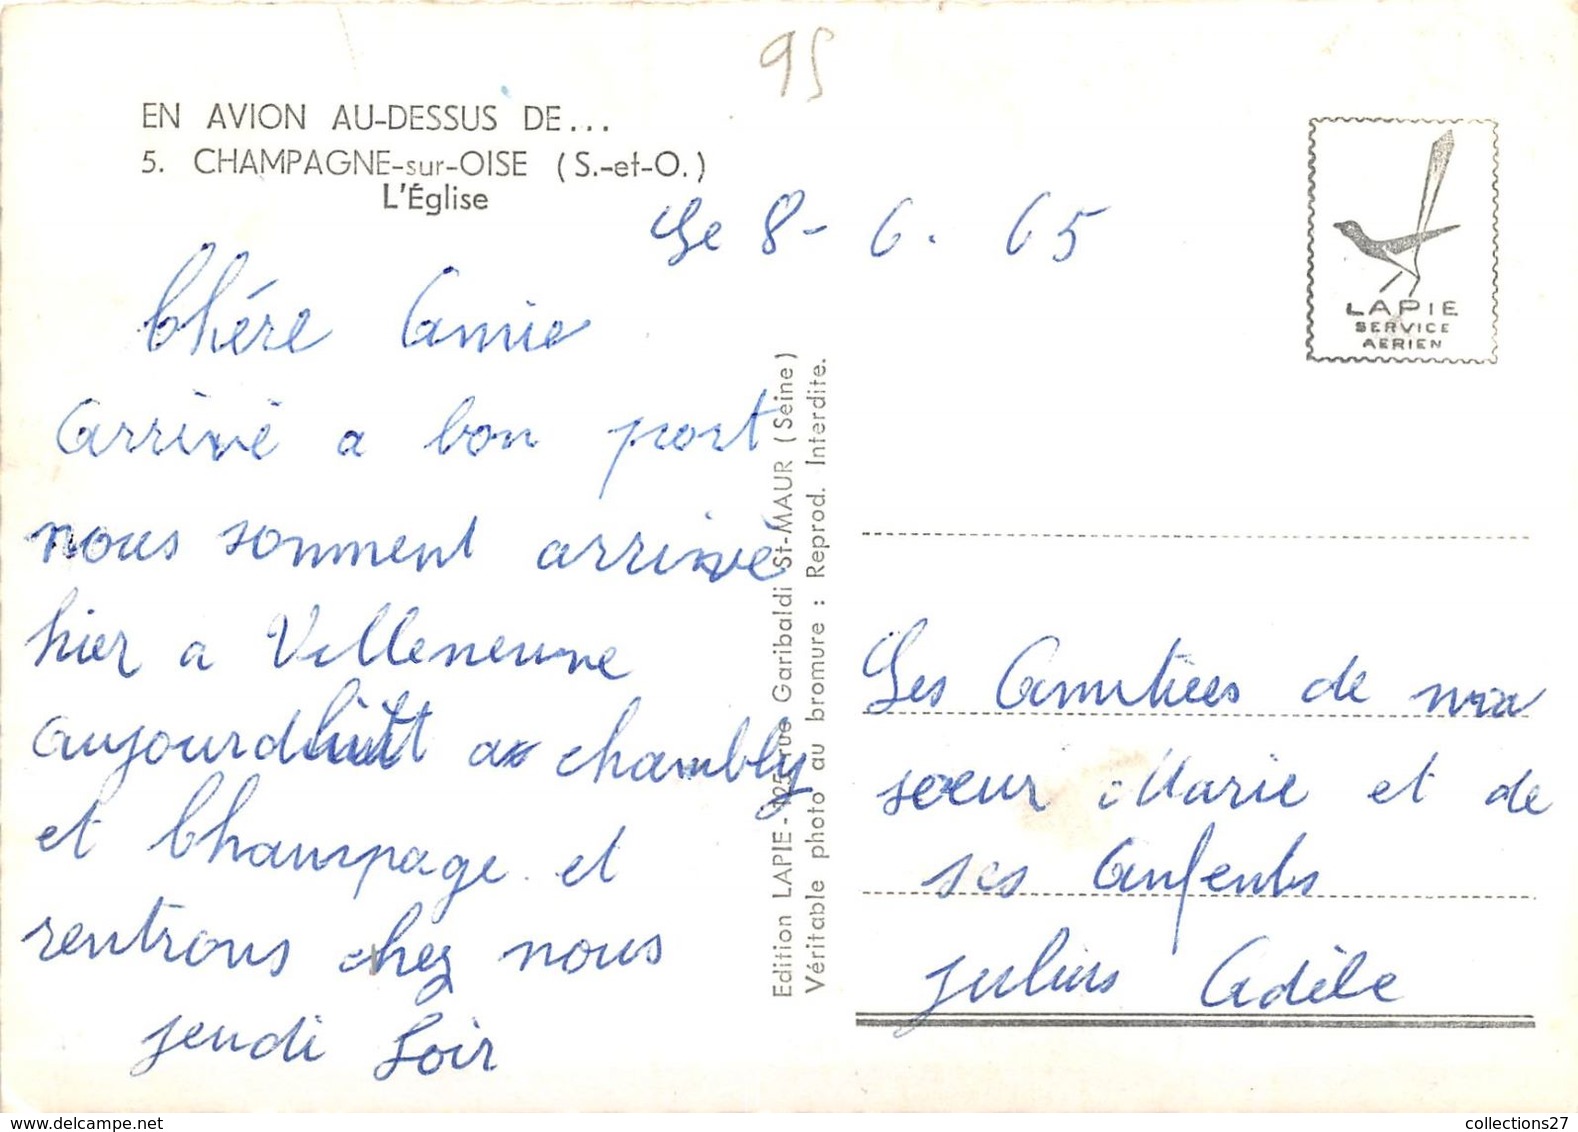 95
EN AVION AU-DESSUS DE...
5. CHAMPAGNE-sur-OISE (S.-et-O.)
L'Église
Le 8-6.65
Chére Amie
Arrivé a bon port
nous somment arrivé
hier a Villeneuve
aujourdhuit a chambly
et Champage et
rentrons chez nous
jeudi soir
Edition LAPIE - rue Garibaldi St-MAUR (Seine)
Véritable photo au bromure : Reprod. Interdite.
LAPIE
SERVICE
AERIEN
Les Amitiees de ma
soeur Marie et de
ses Anfents
Julius Adèle
collections27